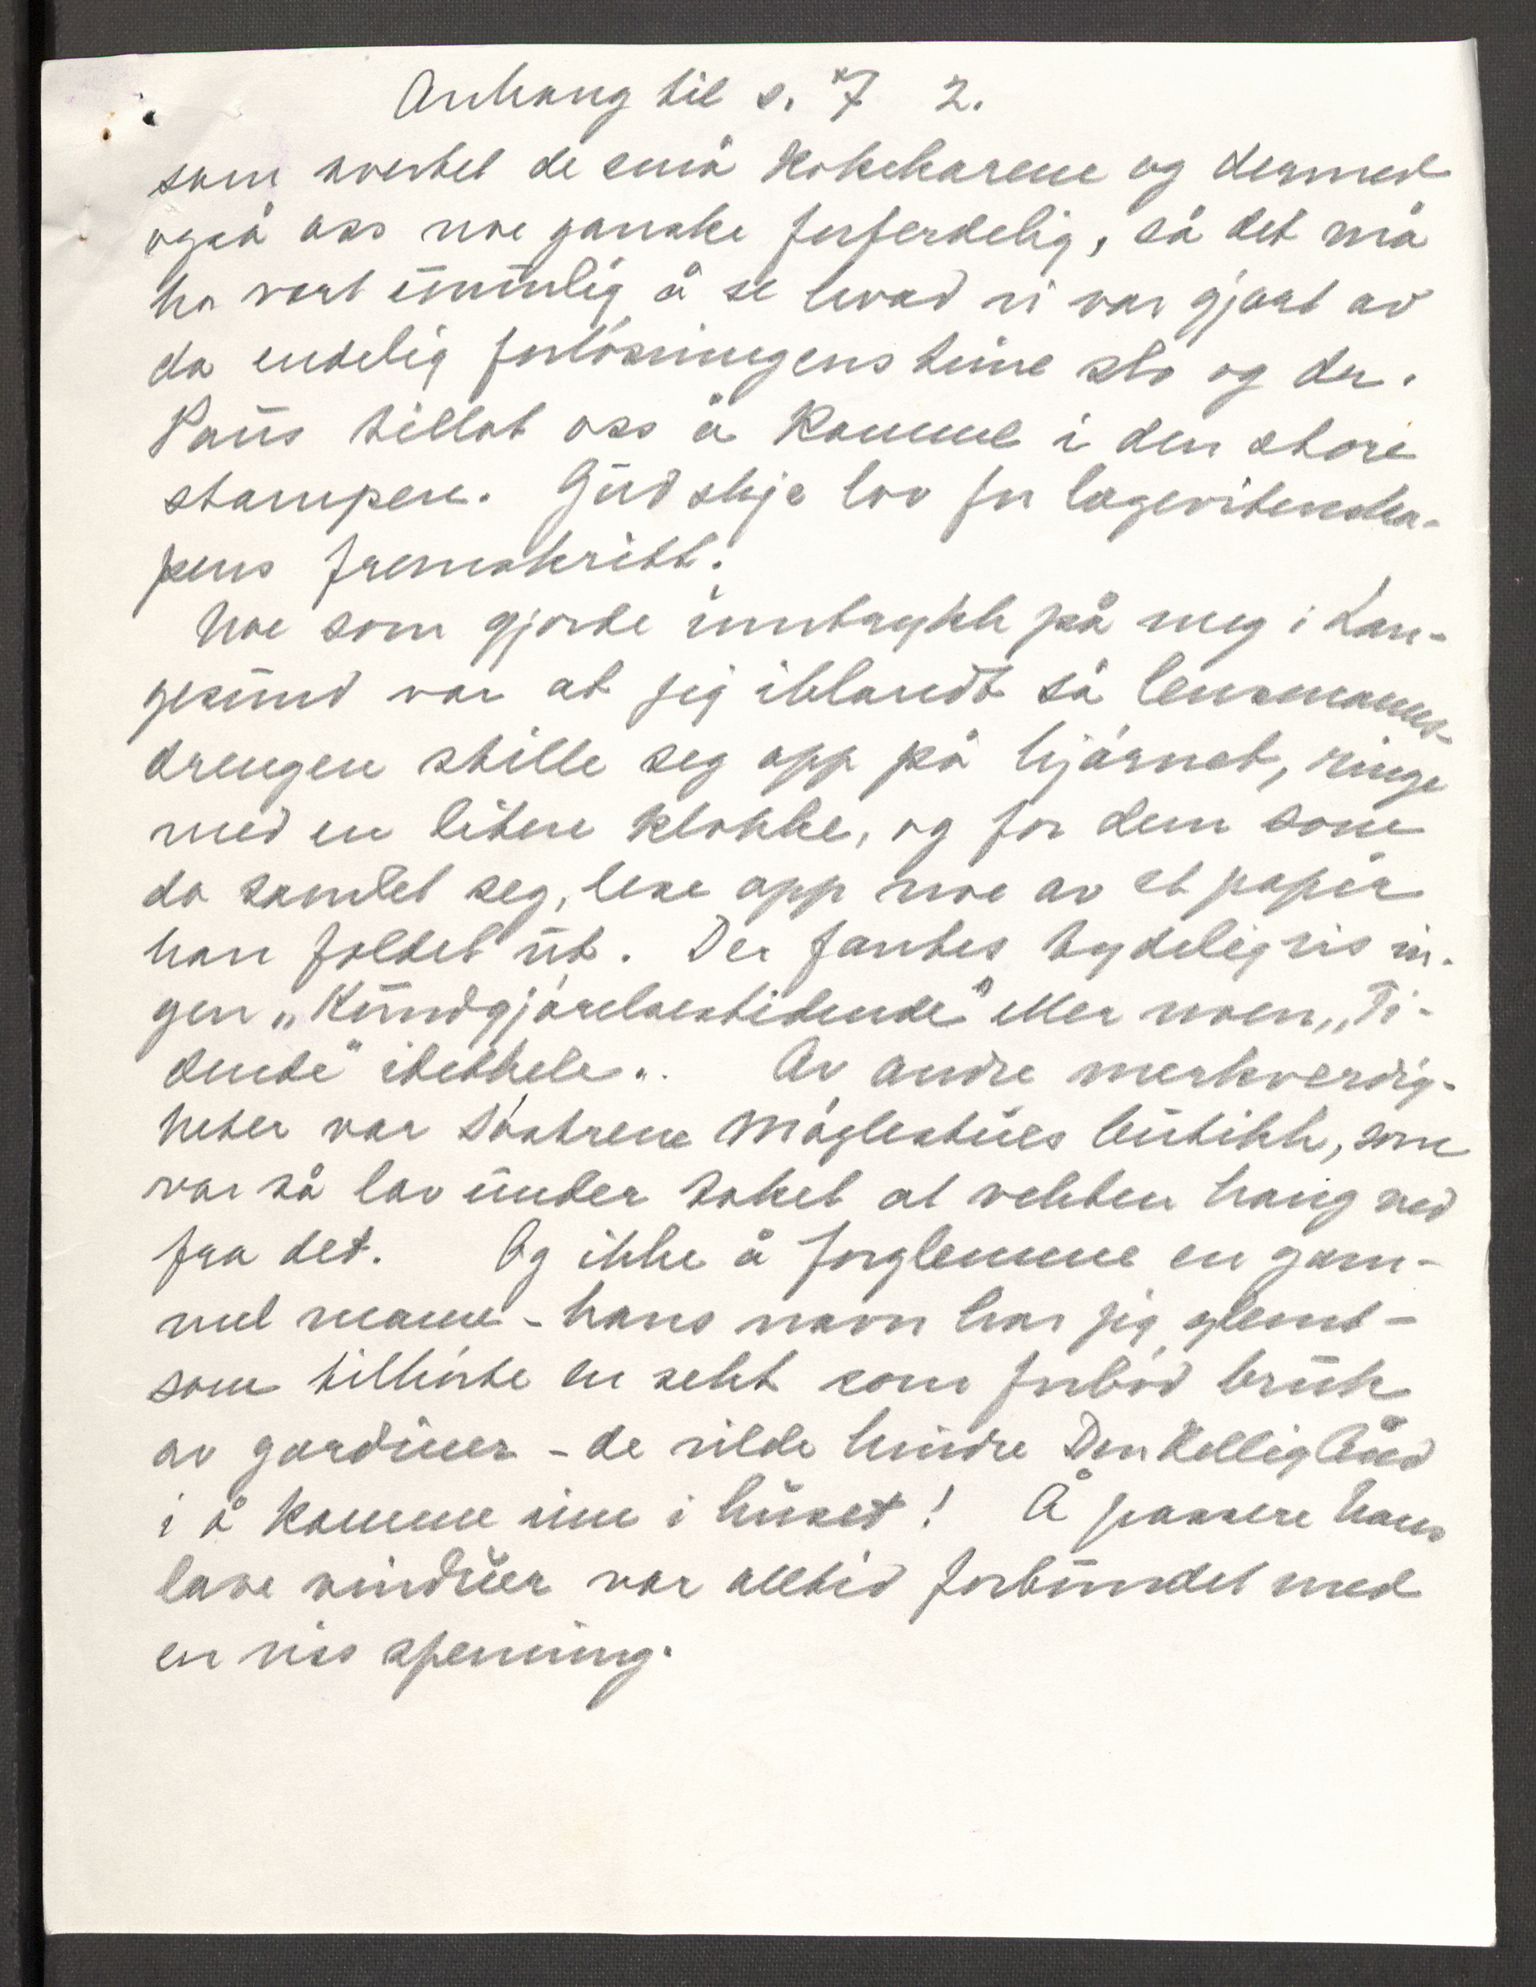 Anhang til s. 7 2.
som svertet de små kokekarene og dermed
også oss noe ganske forferdelig, så det må
ha vært umulig å se hvad vi var gjort av
da endelig forløsningens time slo og dr.
Paus tillot oss å komme i den store
stampen. Gud skje lov for lægevitenska-
pens fremskritt.
Noe som gjorde inntrykk på meg i Lan-
gesund var at jeg iblandt så lensmanns-
drengen stille seg opp på hjørnet, ringe
med en liten klokke, og for dem som
da samlet seg, lese opp noe av et papir
han foldet ut. Der fantes tydeligvis in-
gen „Kundgjørelsestidende" eller noen „Ti-
dende" idethele. Av andre merkverdig-
heter var Søstrene Møglestues butikk, som
var så lav under taket at vekten hang ned
fra det. Og ikke å forglemme en gam-
mel mann - hans navn har jeg glemt -
som tilhørte en sekt som forbød bruk
av gardiner - de vilde hindre Den Hellig Ånd
i å komme inn i huset! Å passere hans
lave vinduer var alltid forbundet med
en viss spenning.